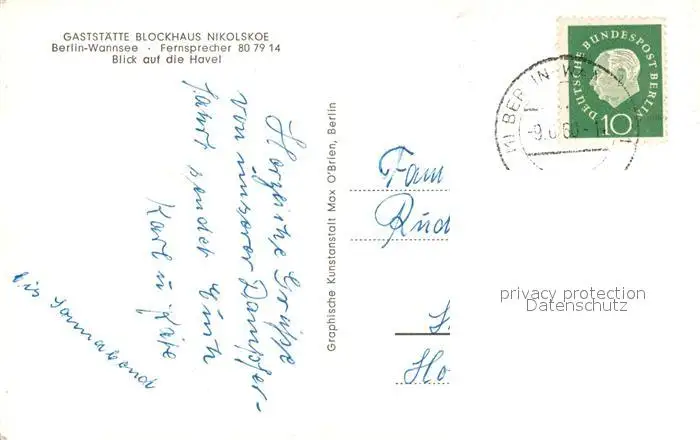 GASTSTÄTTE BLOCKHAUS NIKOLSKOE
Berlin-Wannsee · Fernsprecher 80 79 14
Blick auf die Havel
Herzliche Grüße
von unserer Dampfer-
fahrt sendet Euch
Karl u. Käte
bis Sonnabend
Graphische Kunstanstalt Max O'Brien, Berlin
DEUTSCHE BUNDESPOST BERLIN
10
(1) BERLIN-W
Fam
Rud
Ho
privacy protection
Datenschutz